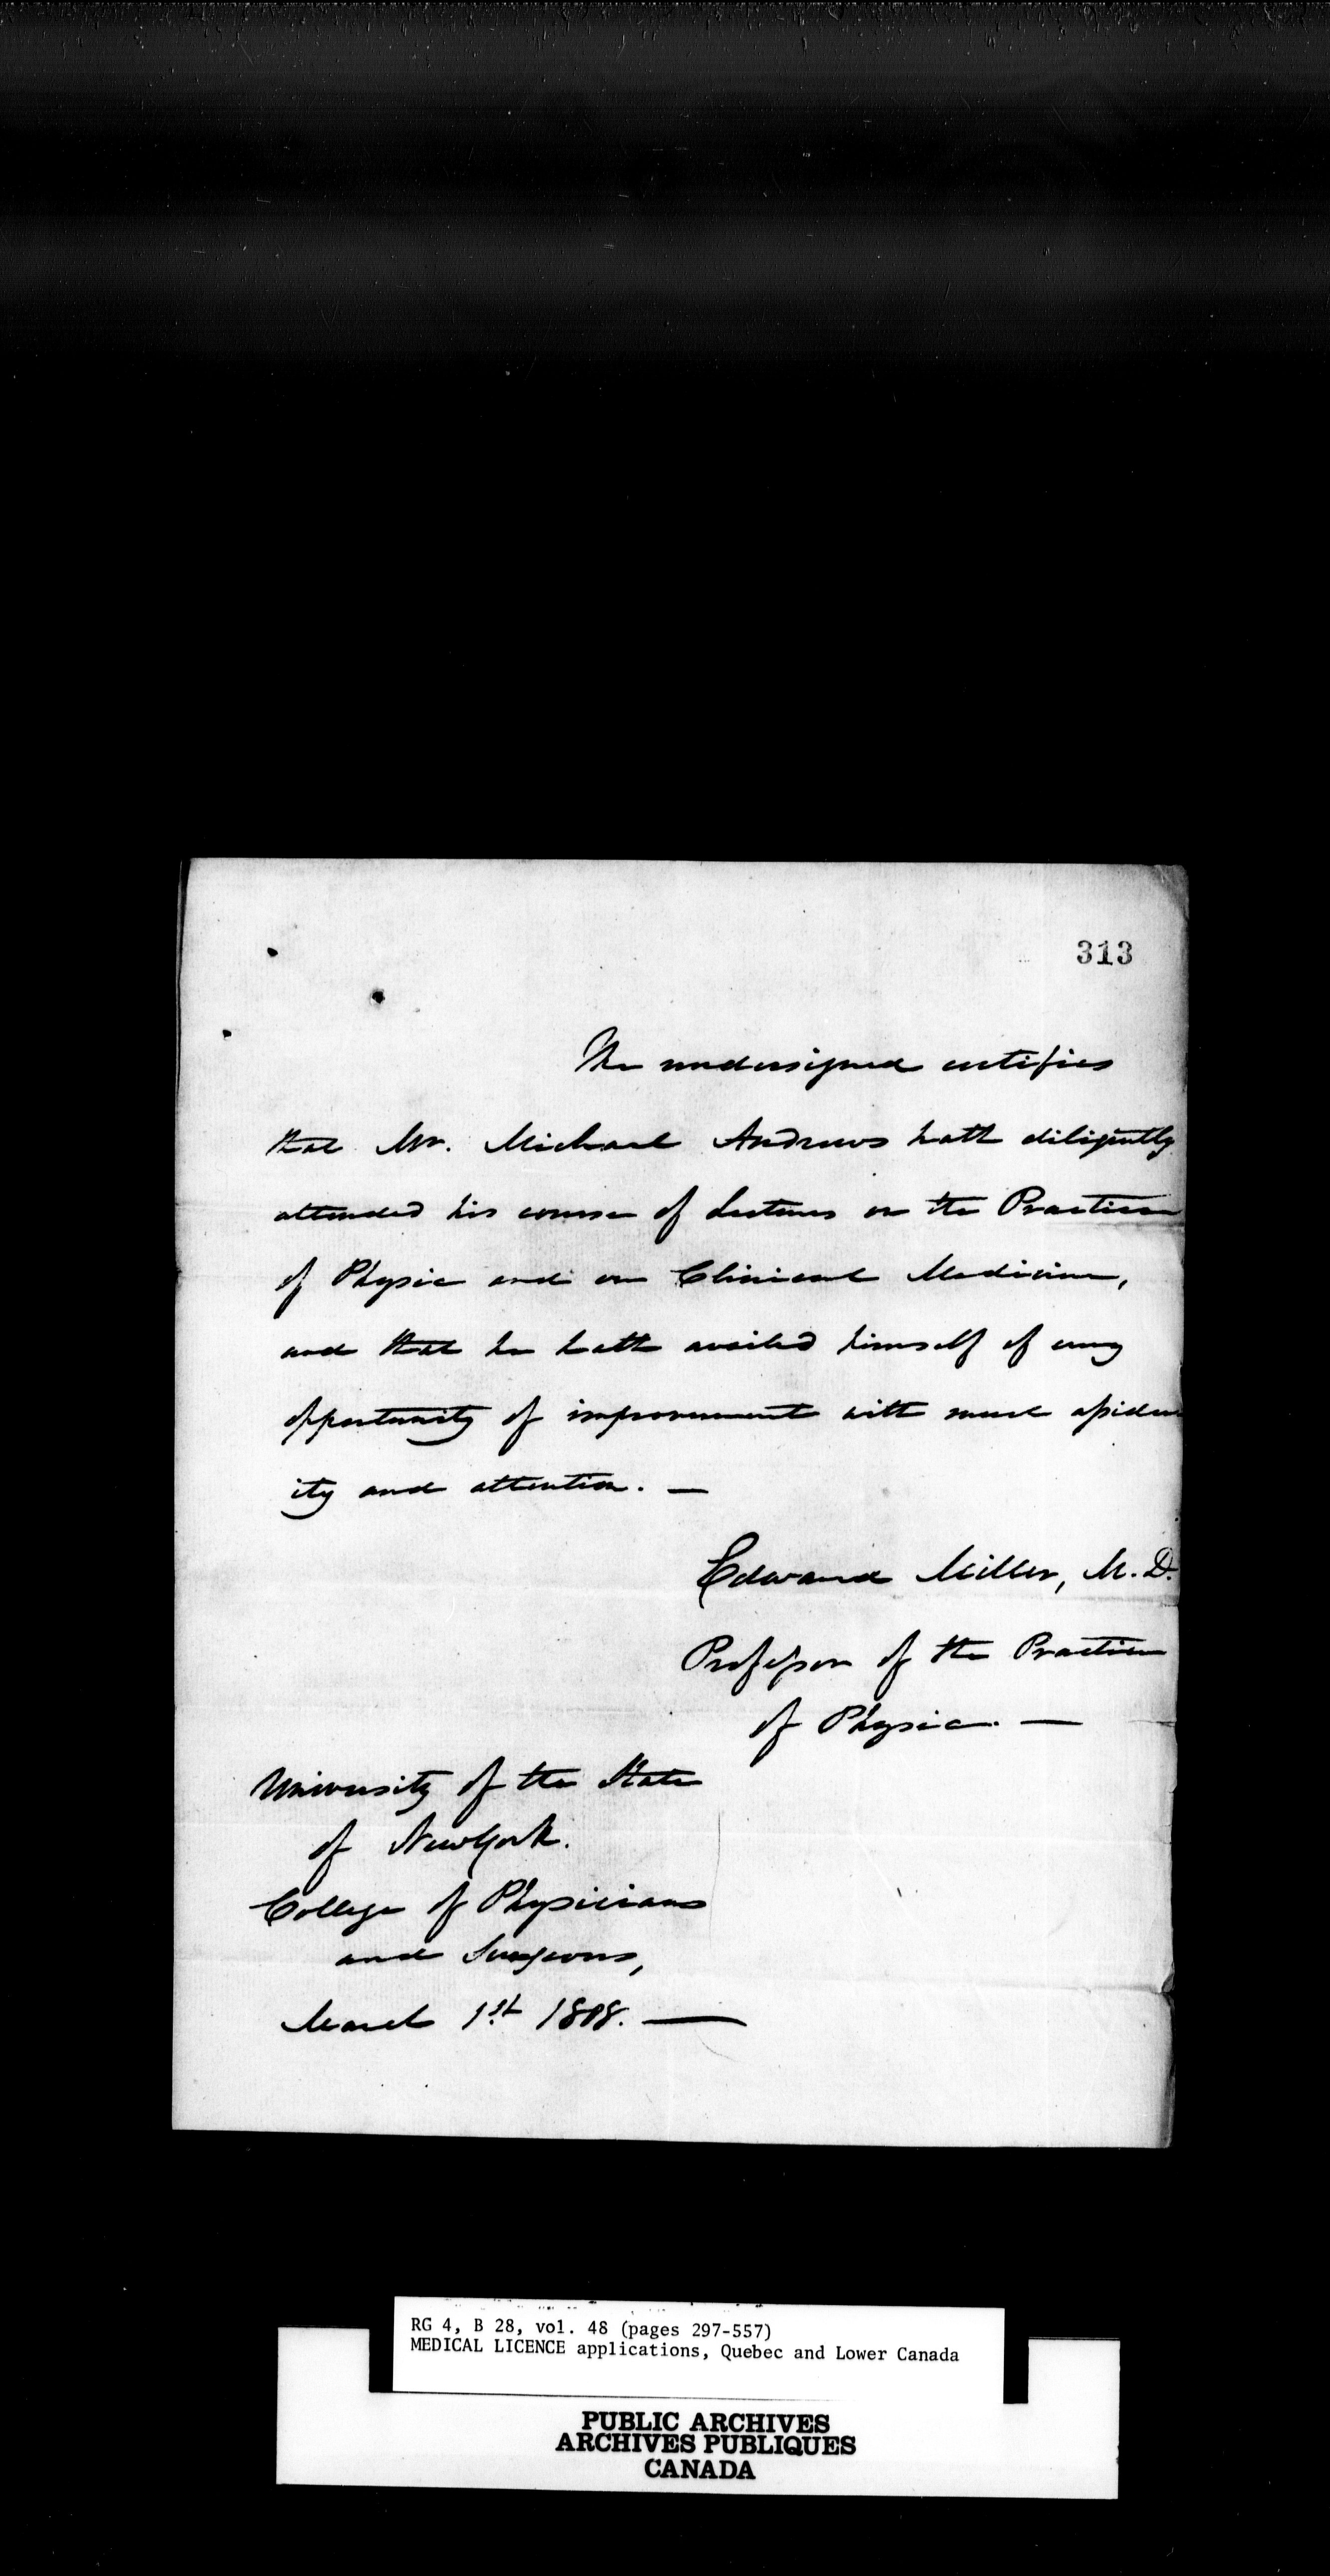 313
The undersigned certifies
that Mr. Michael Andrews hath diligently
attended his course of Lectures on the Practice
of Physic and on Clinical Medicine,
and that he hath availed himself of every
opportunity of improvement with much assidu
ity and attention. —
Edward Miller, M.D.
Professor of the Practice
of Physic. —
University of the State
of New York.
College of Physicians
and Surgeons,
March 1st 1808. —
RG 4, B 28, vol. 48 (pages 297-557)
MEDICAL LICENCE applications, Quebec and Lower Canada
PUBLIC ARCHIVES
ARCHIVES PUBLIQUES
CANADA